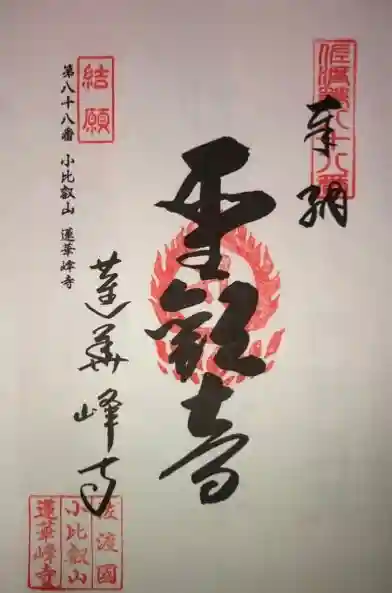 佐渡第八十八番
奉納
聖観音
蓮華峰寺
結願
第八十八番 小比叡山 蓮華峰寺
佐渡國
小比叡山
蓮華峰寺